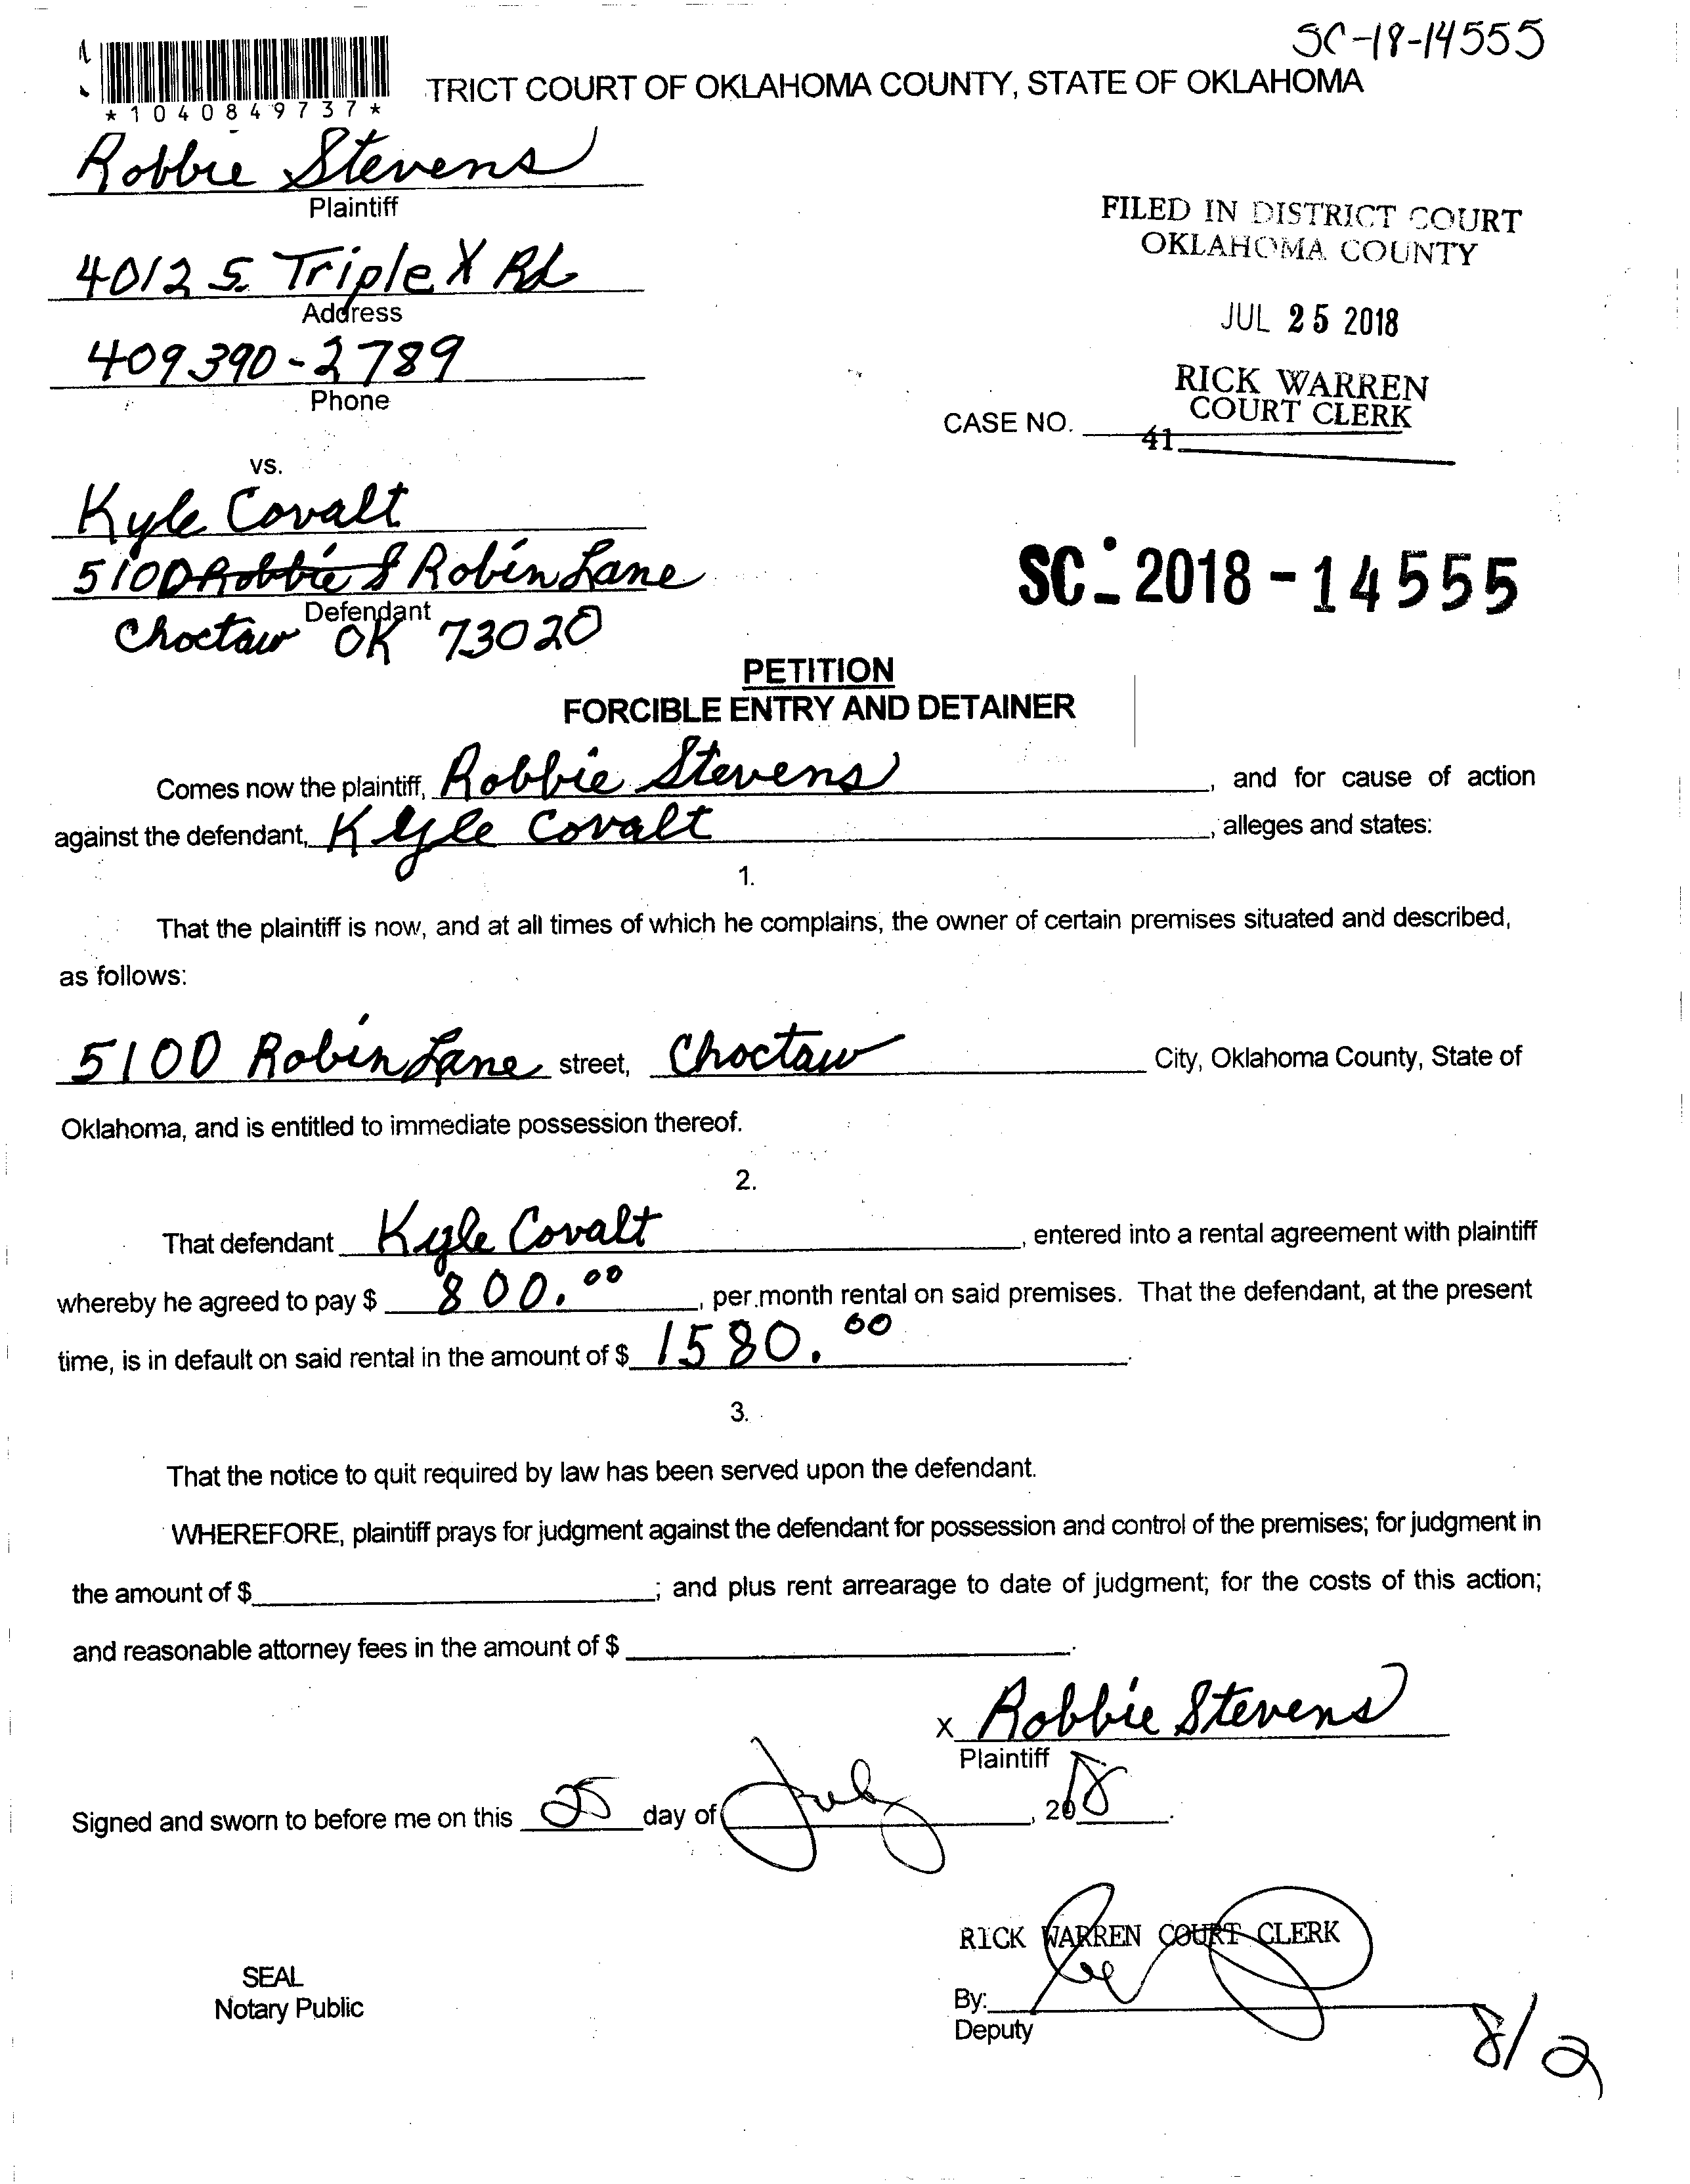 SC-18-14555
*1040849737*
TRICT COURT OF OKLAHOMA COUNTY, STATE OF OKLAHOMA
Robbie Stevens
Plaintiff
4012 S. Triple X Rd
Address
409 390-2789
Phone
FILED IN DISTRICT COURT
OKLAHOMA COUNTY
JUL 25 2018
RICK WARREN
COURT CLERK
CASE NO.
41
vs.
Kyle Covalt
5100 Robbie S Robin Lane
Defendant
Choctaw OK 73020
SC-2018-14555
PETITION
FORCIBLE ENTRY AND DETAINER
Comes now the plaintiff, Robbie Stevens, and for cause of action
against the defendant, Kyle Covalt, alleges and states:
1.
That the plaintiff is now, and at all times of which he complains, the owner of certain premises situated and described,
as follows:
5100 Robin Lane street, Choctaw City, Oklahoma County, State of
Oklahoma, and is entitled to immediate possession thereof.
2.
That defendant Kyle Covalt, entered into a rental agreement with plaintiff
whereby he agreed to pay $ 800.00, per month rental on said premises. That the defendant, at the present
time, is in default on said rental in the amount of $ 1580.00.
3.
That the notice to quit required by law has been served upon the defendant.
WHEREFORE, plaintiff prays for judgment against the defendant for possession and control of the premises; for judgment in
the amount of $; and plus rent arrearage to date of judgment; for the costs of this action;
and reasonable attorney fees in the amount of $.
X Robbie Stevens
Plaintiff
Signed and sworn to before me on this 25 day of July, 2018.
RICK WARREN COURT CLERK
SEAL
Notary Public
By:
Deputy
8/2